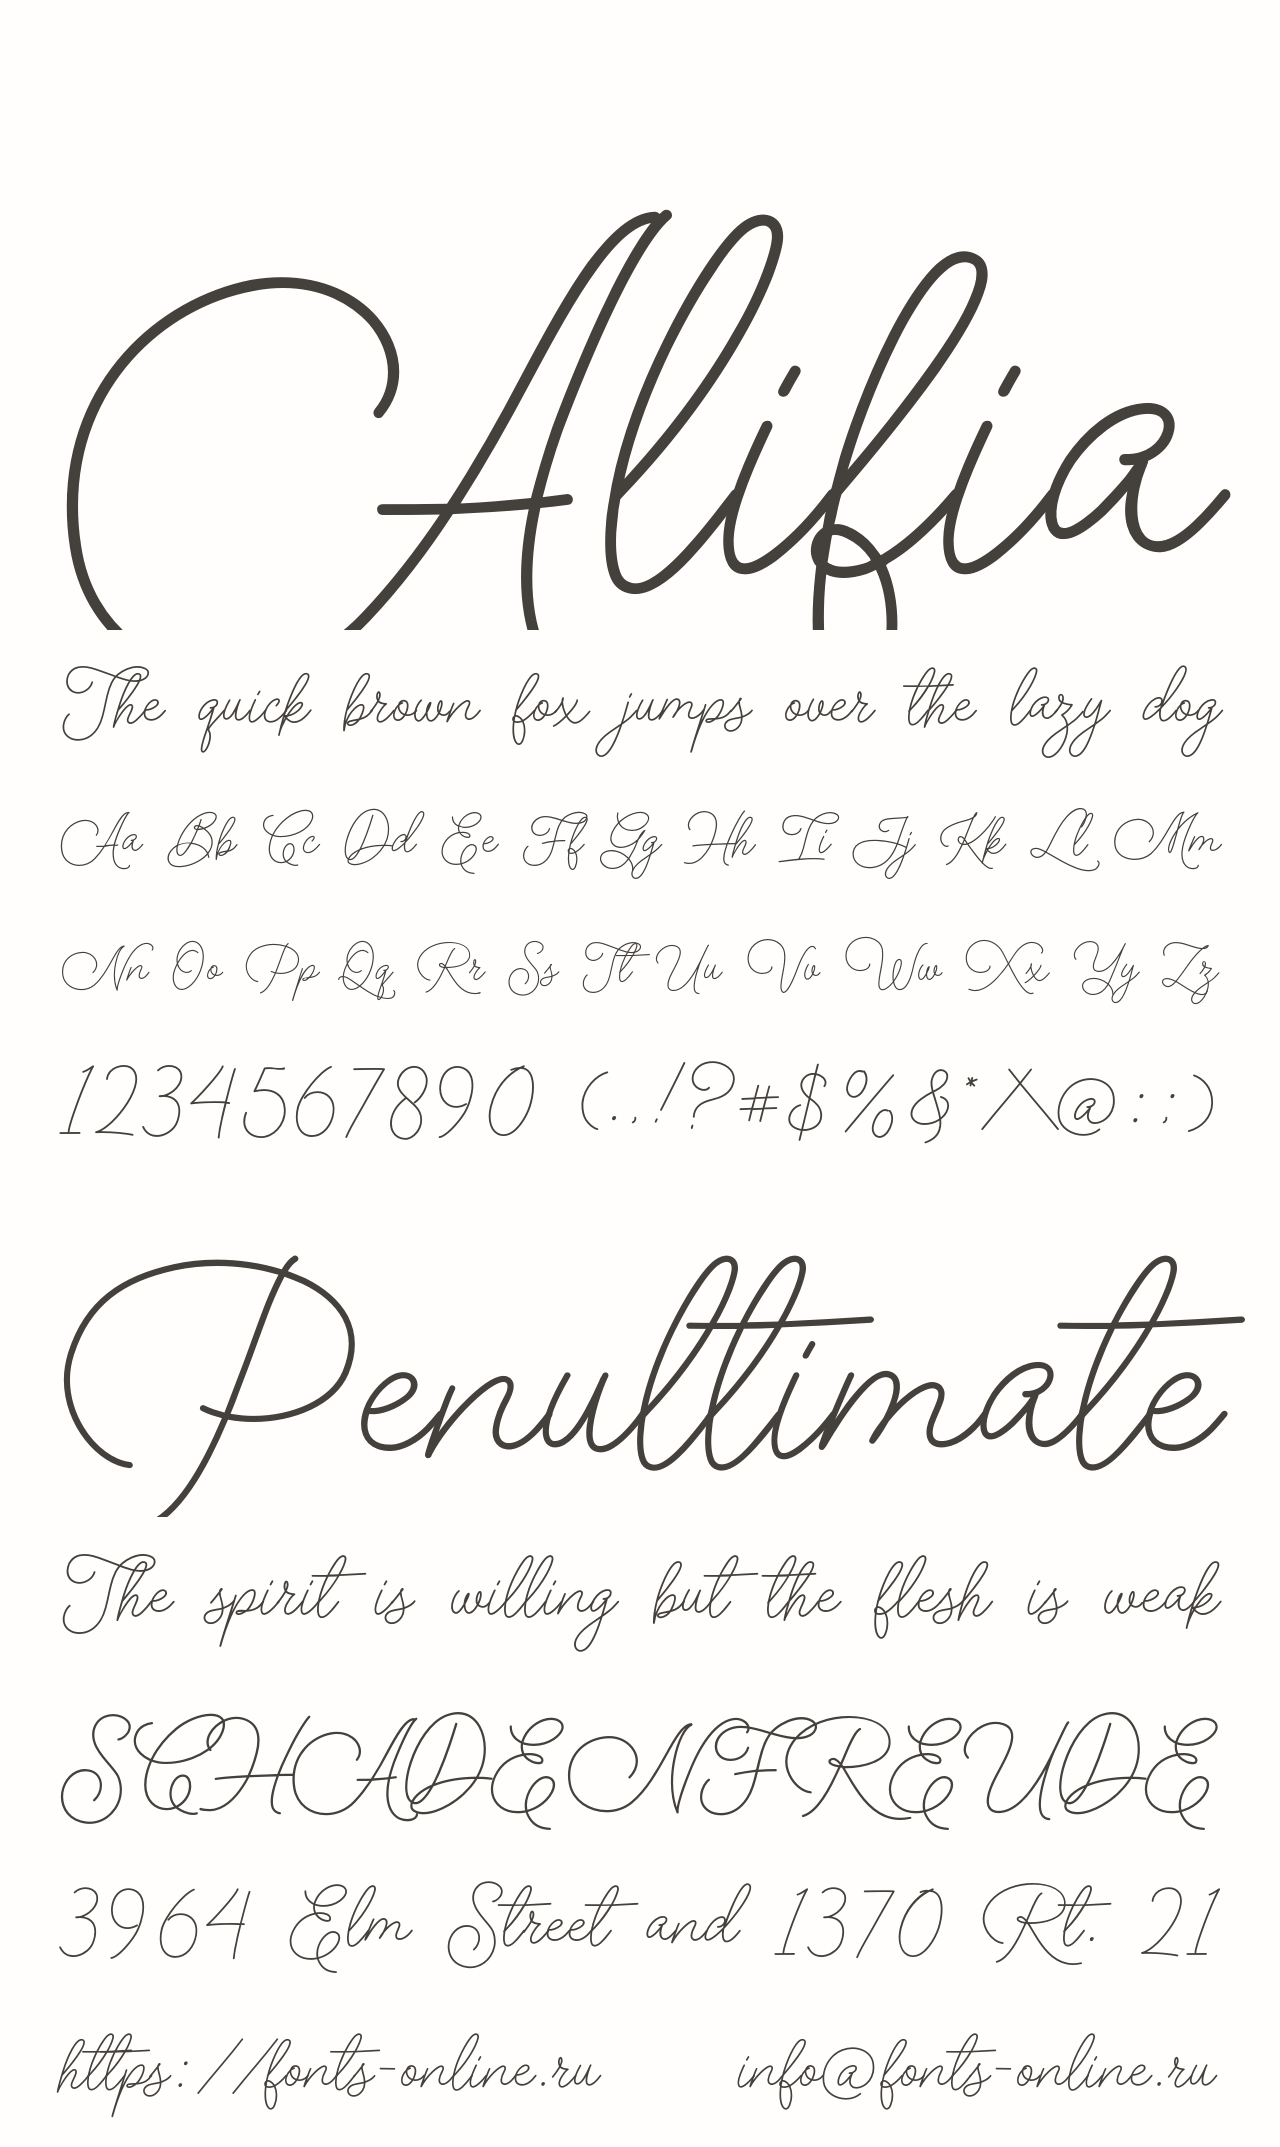 Alifia
The quick brown fox jumps over the lazy dog
Aa Bb Cc Dd Ee Ff Gg Hh Ii Jj Kk Ll Mm
Nn Oo Pp Qq Rr Ss Tt Uu Vv Ww Xx Yy Zz
1234567890 (.,!?#$%&*/\@:;)
Penultimate
The spirit is willing but the flesh is weak
SCHADENFREUDE
3964 Elm Street and 1370 Rt. 21
https://fonts-online.ru info@fonts-online.ru